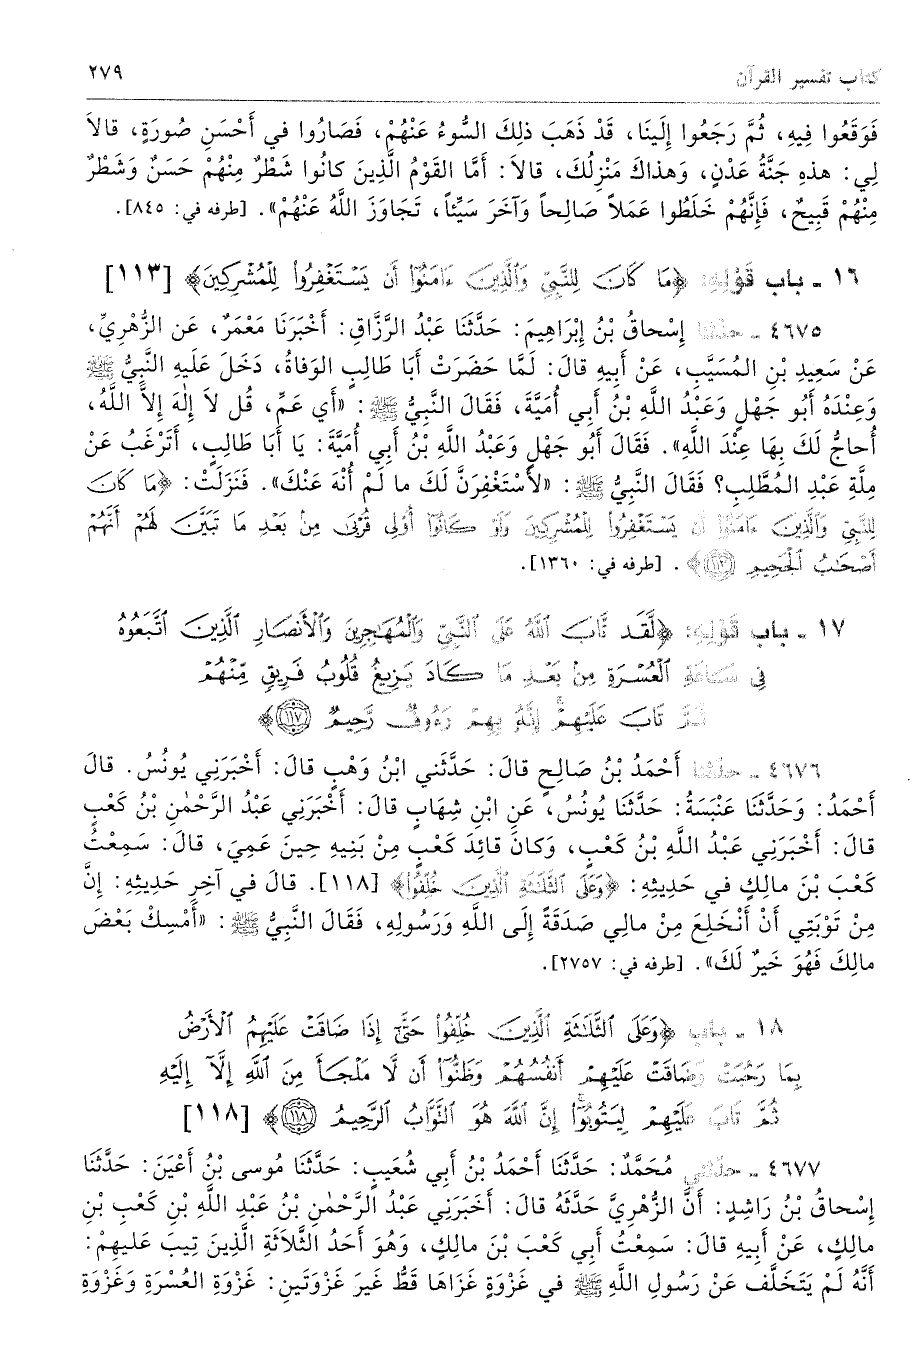 كتاب تفسير القرآن ٢٧٩
فَوَقَعُوا فِيهِ، ثُمَّ رَجَعُوا إِلَيْنَا، قَدْ ذَهَبَ ذٰلِكَ السُّوءُ عَنْهُمْ، فَصَارُوا في أَحْسَنِ صُورَةٍ، قالاَ
لِي: هذهِ جَنَّةُ عَدْنٍ، وَهذاكَ مَنْزِلُكَ، قالاَ: أَمَّا القَوْمُ الَّذِينَ كانُوا شَطْرٌ مِنْهُمْ حَسَنٌ وَشَطْرٌ
مِنْهُمْ قَبِيحٌ، فَإِنَّهُمْ خَلَطُوا عَمَلاً صَالِحاً وَآخَرَ سَيِّئاً، تَجَاوَزَ اللَّهُ عَنْهُمْ». [طرفه في: ٨٤٥].
١٦ ـ باب قَوْلِهِ: ﴿مَا كَانَ لِلنَّبِيِّ وَالَّذِينَ ءَامَنُوٓا أَن يَسْتَغْفِرُوا لِلْمُشْرِكِينَ﴾ [١١٣]
٤٦٧٥ ـ حدّثنا إِسْحاقُ بْنُ إِبْرَاهِيمَ: حَدَّثَنَا عَبْدُ الرَّزَّاقِ: أَخْبَرَنَا مَعْمَرٌ، عَنِ الزُّهْرِيِّ،
عَنْ سَعِيدِ بْنِ المُسَيَّبِ، عَنْ أَبِيهِ قالَ: لَمَّا حَضَرَتْ أَبَا طَالِبٍ الوَفاةُ، دَخَلَ عَلَيهِ النَّبِيُّ ﷺ
وَعِنْدَهُ أَبُو جَهْلٍ وَعَبْدُ اللَّهِ بْنُ أَبِي أُمَيَّةَ، فَقَالَ النَّبِيُّ ﷺ: «أَي عَمِّ، قُل لاَ إِلٰهَ إِلاَّ اللَّهُ،
أُحاجُّ لَكَ بِهَا عِنْدَ اللَّهِ». فَقَالَ أَبُو جَهْلٍ وَعَبْدُ اللَّهِ بْنُ أَبِي أُمَيَّةَ: يَا أَبَا طَالِبٍ، أَتَرْغَبُ عَنْ
مِلَّةِ عَبْدِ المُطَّلِبِ؟ فَقَالَ النَّبِيُّ ﷺ: «لأَسْتَغْفِرَنَّ لَكَ ما لَمْ أُنْهَ عَنْكَ». فَنَزَلَتْ: ﴿مَا كَانَ
لِلنَّبِيِّ وَالَّذِينَ ءَامَنُوٓا أَن يَسْتَغْفِرُوا لِلْمُشْرِكِينَ وَلَوْ كَانُوٓا أُوْلِي قُرْبَى مِنْ بَعْدِ مَا تَبَيَّنَ لَهُمْ أَنَّهُمْ
أَصْحَابُ الْجَحِيمِ (١١٣)﴾. [طرفه في: ١٣٦٠].
١٧ ـ باب قَوْلِهِ: ﴿لَّقَد تَّابَ اللَّهُ عَلَى النَّبِيِّ وَالْمُهَاجِرِينَ وَالْأَنصَارِ الَّذِينَ اتَّبَعُوهُ
فِي سَاعَةِ الْعُسْرَةِ مِنْ بَعْدِ مَا كَادَ يَزِيغُ قُلُوبُ فَرِيقٍ مِّنْهُمْ
ثُمَّ تَابَ عَلَيْهِمْ إِنَّهُ بِهِمْ رَءُوفٌ رَّحِيمٌ (١١٧)﴾
٤٦٧٦ ـ حدّثنا أَحْمَدُ بْنُ صَالِحٍ قالَ: حَدَّثَني ابْنُ وَهْبٍ قالَ: أَخْبَرَنِي يُونُسُ. قالَ
أَحْمَدُ: وَحَدَّثَنَا عَنْبَسَةُ: حَدَّثَنَا يُونُسُ، عَنِ ابْنِ شِهَابٍ قالَ: أَخْبَرَنِي عَبْدُ الرَّحْمٰنِ بْنُ كَعْبٍ
قالَ: أَخْبَرَنِي عَبْدُ اللَّهِ بْنُ كَعْبٍ، وَكانَ قائِدَ كَعْبٍ مِنْ بَنِيهِ حِينَ عَمِيَ، قالَ: سَمِعْتُ
كَعْبَ بْنَ مالِكٍ في حَدِيثِهِ: ﴿وَعَلَى الثَّلَاثَةِ الَّذِينَ خُلِّفُوا﴾ [١١٨]. قالَ في آخِرِ حَدِيثِهِ: إِنَّ
مِنْ تَوْبَتِي أَنْ أَنْخَلِعَ مِنْ مالِي صَدَقَةً إِلَى اللَّهِ وَرَسُولِهِ، فَقَالَ النَّبِيُّ ﷺ: «أَمْسِكْ بَعْضَ
مالِكَ فَهُوَ خَيرٌ لَكَ». [طرفه في: ٢٧٥٧].
١٨ ـ باب ﴿وَعَلَى الثَّلَاثَةِ الَّذِينَ خُلِّفُوا حَتَّىٰ إِذَا ضَاقَتْ عَلَيْهِمُ الْأَرْضُ
بِمَا رَحُبَتْ وَضَاقَتْ عَلَيْهِمْ أَنفُسُهُمْ وَظَنُّوٓا أَن لَّا مَلْجَأَ مِنَ اللَّهِ إِلَّآ إِلَيْهِ
ثُمَّ تَابَ عَلَيْهِمْ لِيَتُوبُوٓا إِنَّ اللَّهَ هُوَ التَّوَّابُ الرَّحِيمُ (١١٨)﴾ [١١٨]
٤٦٧٧ ـ حدّثني مُحَمَّدٌ: حَدَّثَنَا أَحْمَدُ بْنُ أَبِي شُعَيبٍ: حَدَّثَنَا مُوسى بْنُ أَعْيَنَ: حَدَّثَنَا
إِسْحاقُ بْنُ رَاشِدٍ: أَنَّ الزُّهْرِيَّ حَدَّثَهُ قالَ: أَخْبَرَنِي عَبْدُ الرَّحْمٰنِ بْنُ عَبْدِ اللَّهِ بْنِ كَعْبِ بْنِ
مالِكٍ، عَنْ أَبِيهِ قالَ: سَمِعْتُ أَبِي كَعْبَ بْنَ مالِكٍ، وَهُوَ أَحَدُ الثَّلاَثَةِ الَّذِينَ تِيبَ عَلَيهِمْ:
أَنَّهُ لَمْ يَتَخَلَّف عَنْ رَسُولِ اللَّهِ ﷺ في غَزْوَةٍ غَزَاهَا قَطُّ غَيرَ غَزْوَتَينِ: غَزْوَةِ العُسْرَةِ وَغَزْوَةِ